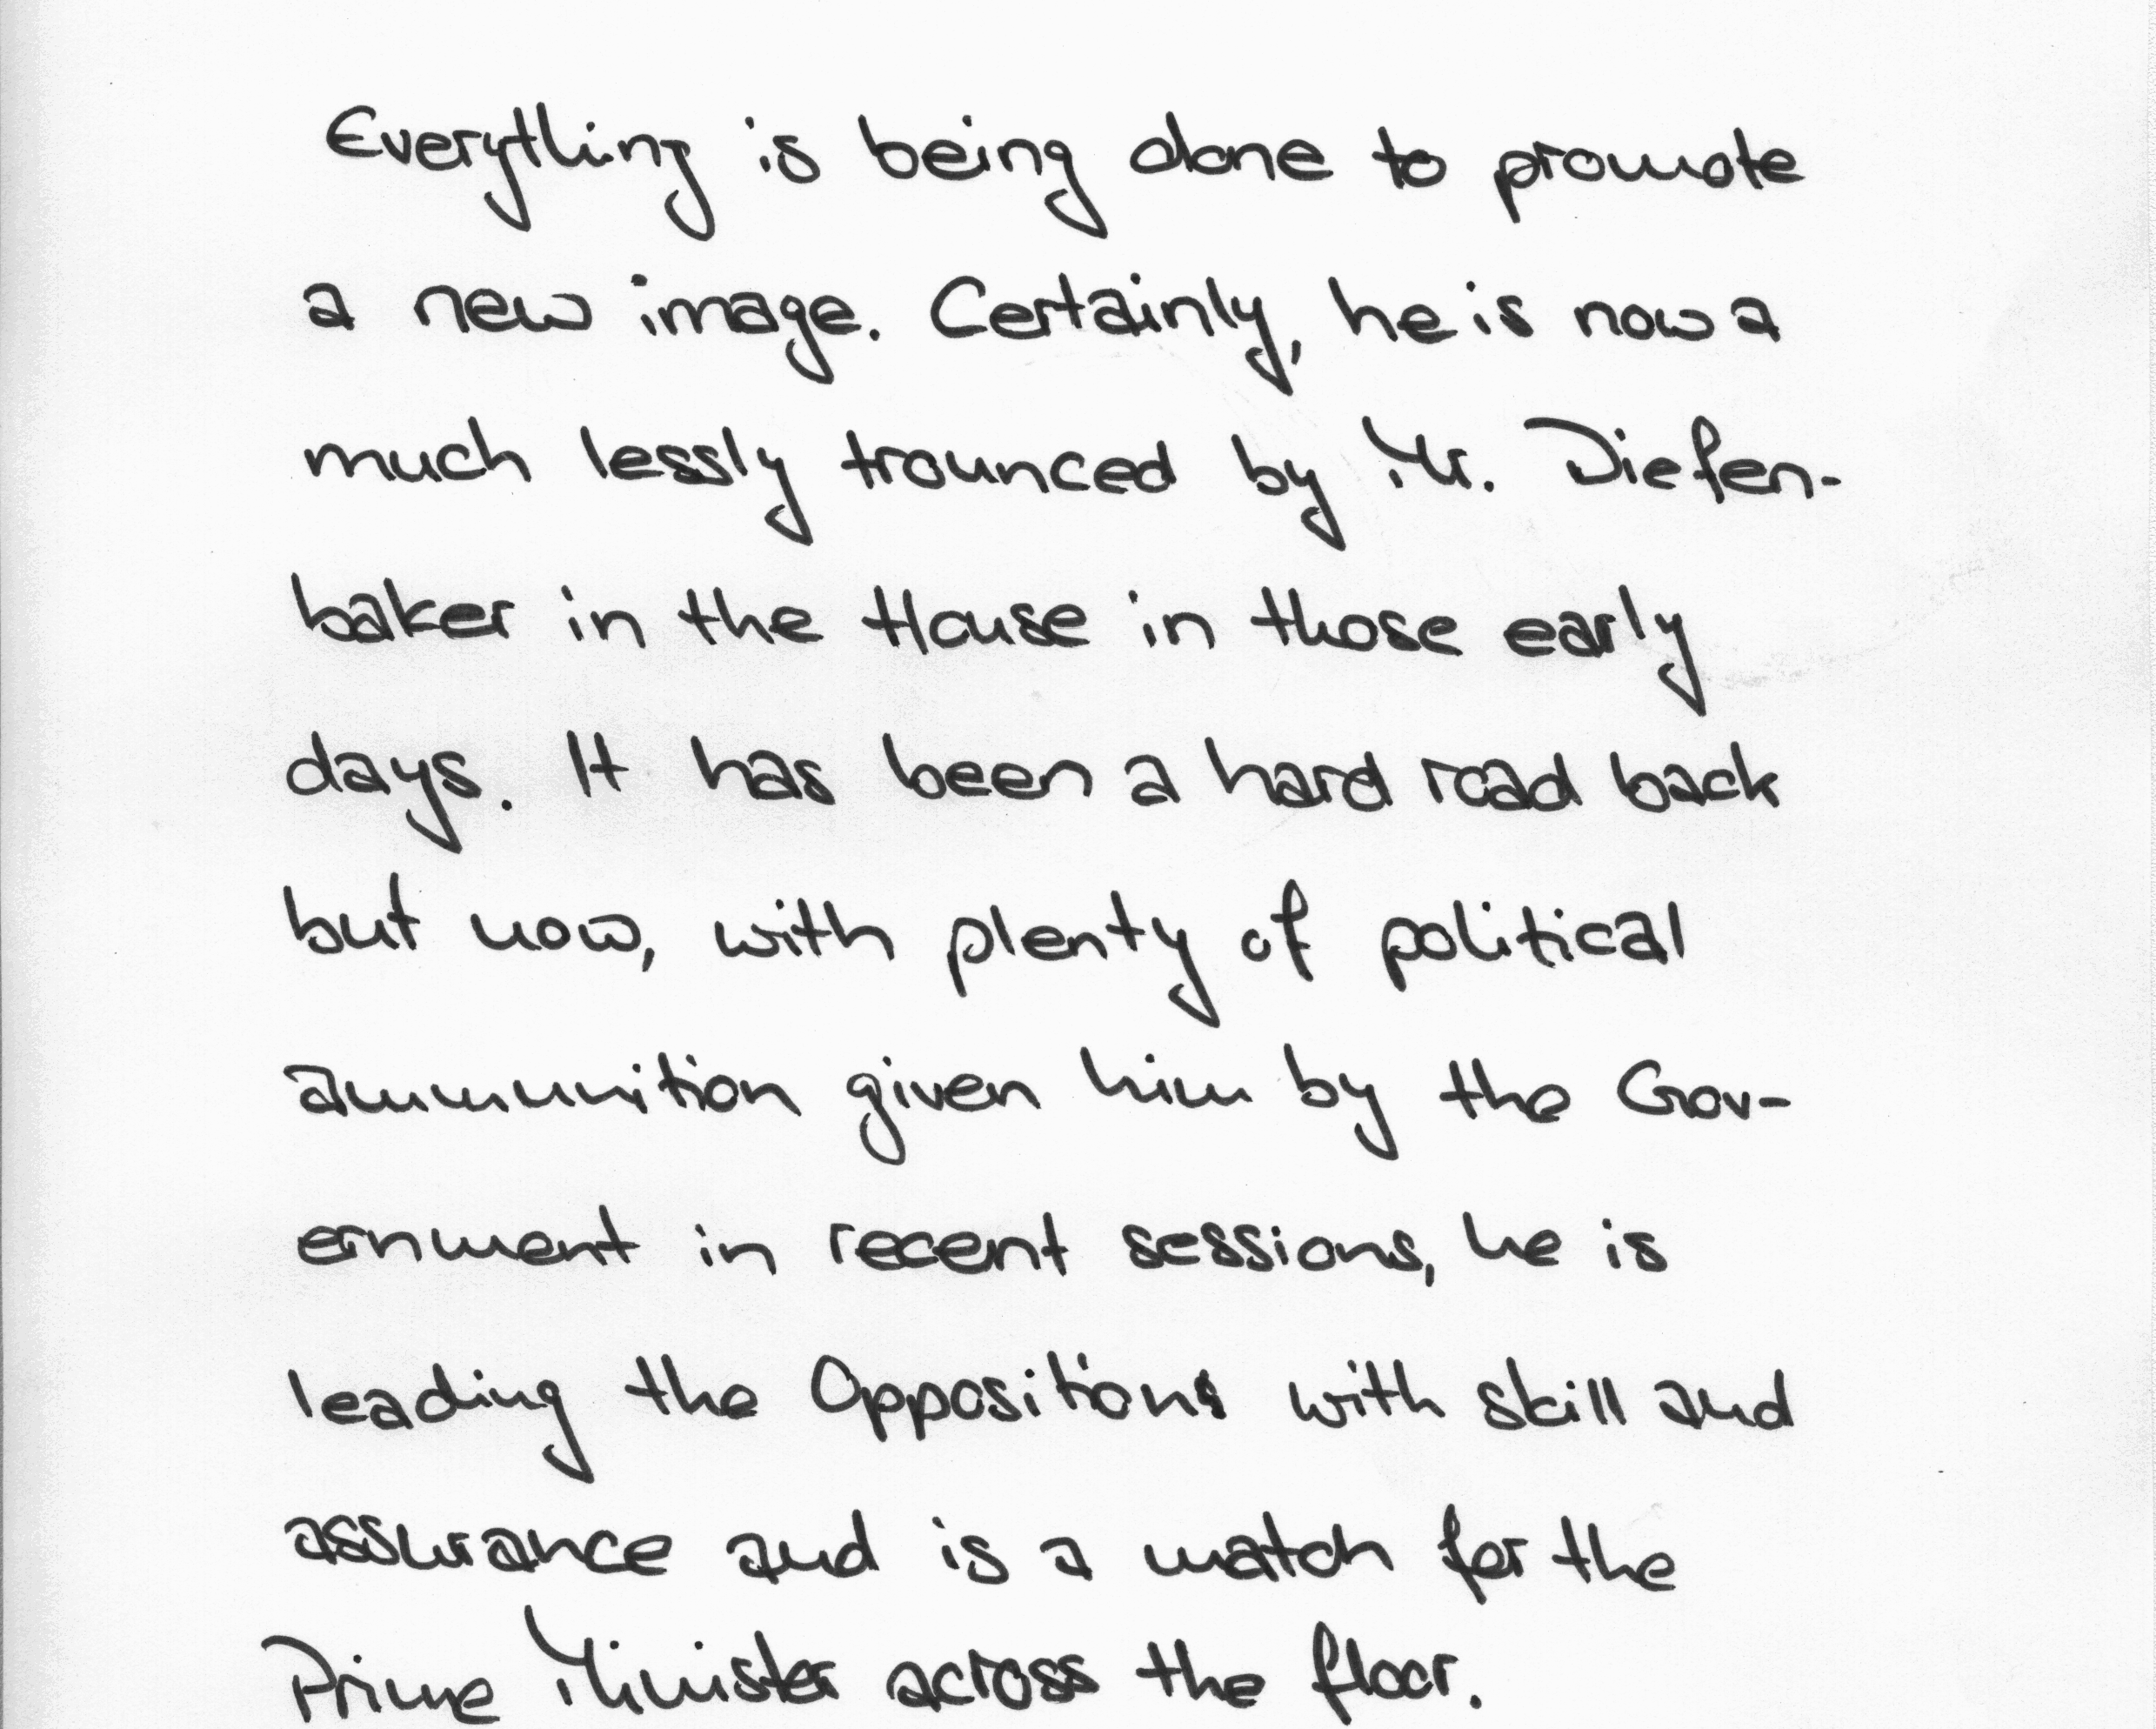 Everything is being done to promote
a new image. Certainly, he is now a
much lessly trounced by Mr. Diefen-
baker in the House in those early
days. It has been a hard road back
but now, with plenty of political
ammunition given him by the Gov-
ernment in recent sessions, he is
leading the Opposition with skill and
assurance and is a match for the
Prime Minister across the floor.